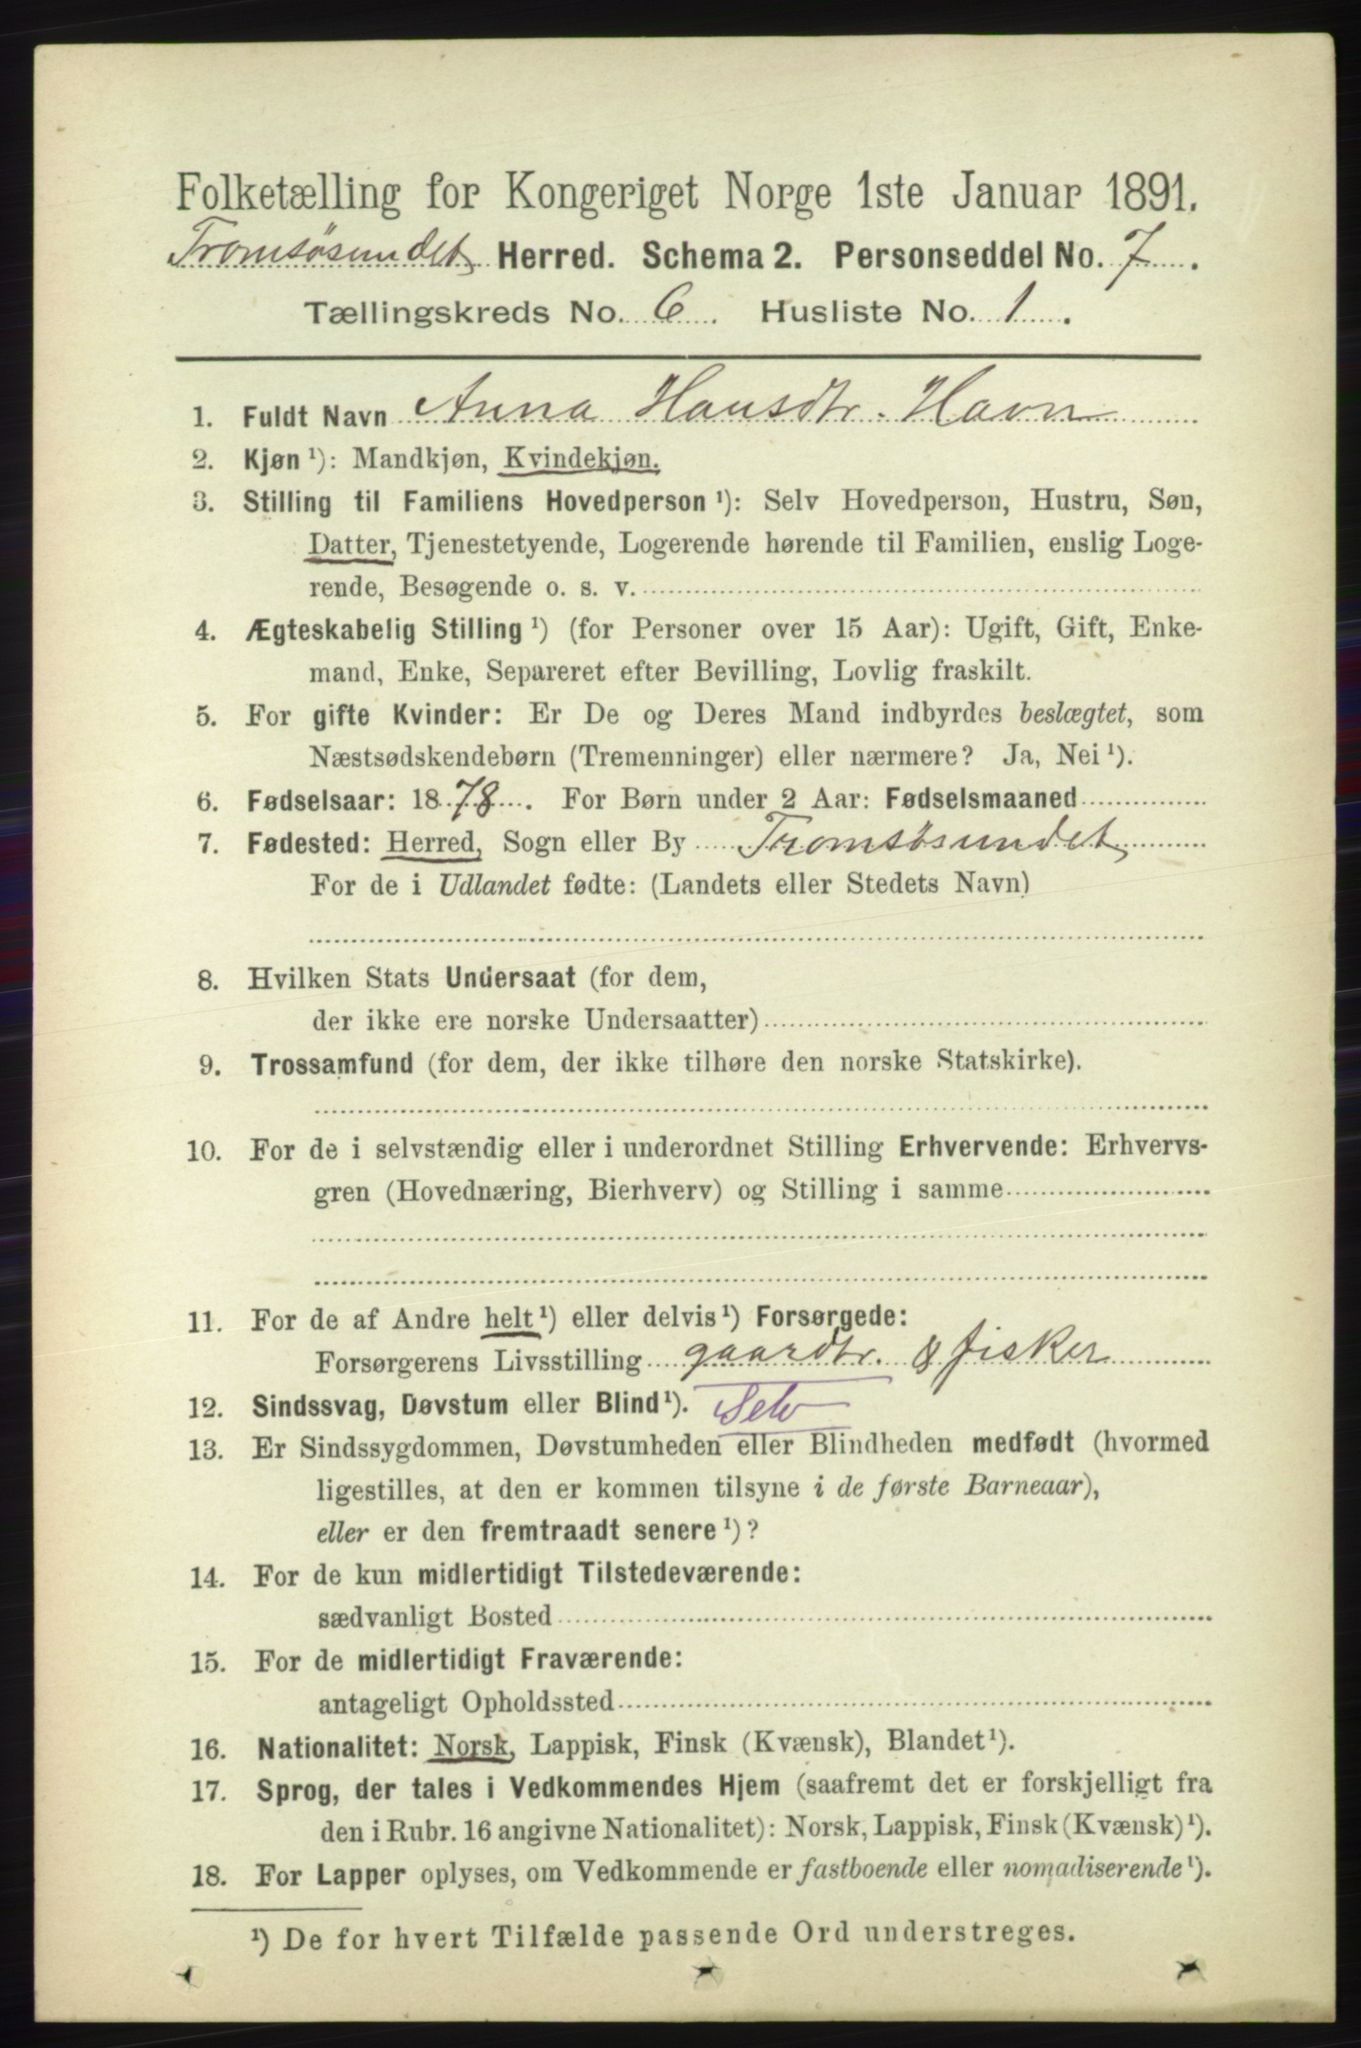 Folketælling for Kongeriget Norge 1ste Januar 1891.
Tromsøsundet Herred. Schema 2. Personseddel No. 7.
Tællingskreds No. 6. Husliste No. 1.
1. Fuldt Navn Anna Hansdtr. Havn
2. Kjøn¹): Mandkjøn, Kvindekjøn.
3. Stilling til Familiens Hovedperson¹): Selv Hovedperson, Hustru, Søn,
Datter, Tjenestetyende, Logerende hørende til Familien, enslig Loge-
rende, Besøgende o. s. v.
4. Ægteskabelig Stilling¹) (for Personer over 15 Aar): Ugift, Gift, Enke-
mand, Enke, Separeret efter Bevilling, Lovlig fraskilt.
5. For gifte Kvinder: Er De og Deres Mand indbyrdes beslægtet, som
Næstsødskendebørn (Tremenninger) eller nærmere? Ja, Nei¹).
6. Fødselsaar: 1878. For Børn under 2 Aar: Fødselsmaaned
7. Fødested: Herred, Sogn eller By Tromsøsundet
For de i Udlandet fødte: (Landets eller Stedets Navn)
8. Hvilken Stats Undersaat (for dem,
der ikke ere norske Undersaatter)
9. Trossamfund (for dem, der ikke tilhøre den norske Statskirke).
10. For de i selvstændig eller i underordnet Stilling Erhvervende: Erhvervs-
gren (Hovednæring, Bierhverv) og Stilling i samme
11. For de af Andre helt¹) eller delvis¹) Forsørgede:
Forsørgerens Livsstilling gaardbr. & fisker
12. Sindssvag, Døvstum eller Blind¹). Selv
13. Er Sindssygdommen, Døvstumheden eller Blindheden medfødt (hvormed
ligestilles, at den er kommen tilsyne i de første Barneaar),
eller er den fremtraadt senere¹)?
14. For de kun midlertidigt Tilstedeværende:
sædvanligt Bosted
15. For de midlertidigt Fraværende:
antageligt Opholdssted
16. Nationalitet: Norsk, Lappisk, Finsk (Kvænsk), Blandet¹).
17. Sprog, der tales i Vedkommendes Hjem (saafremt det er forskjelligt fra
den i Rubr. 16 angivne Nationalitet): Norsk, Lappisk, Finsk (Kvænsk)¹).
18. For Lapper oplyses, om Vedkommende er fastboende eller nomadiserende¹).
¹) De for hvert Tilfælde passende Ord understreges.